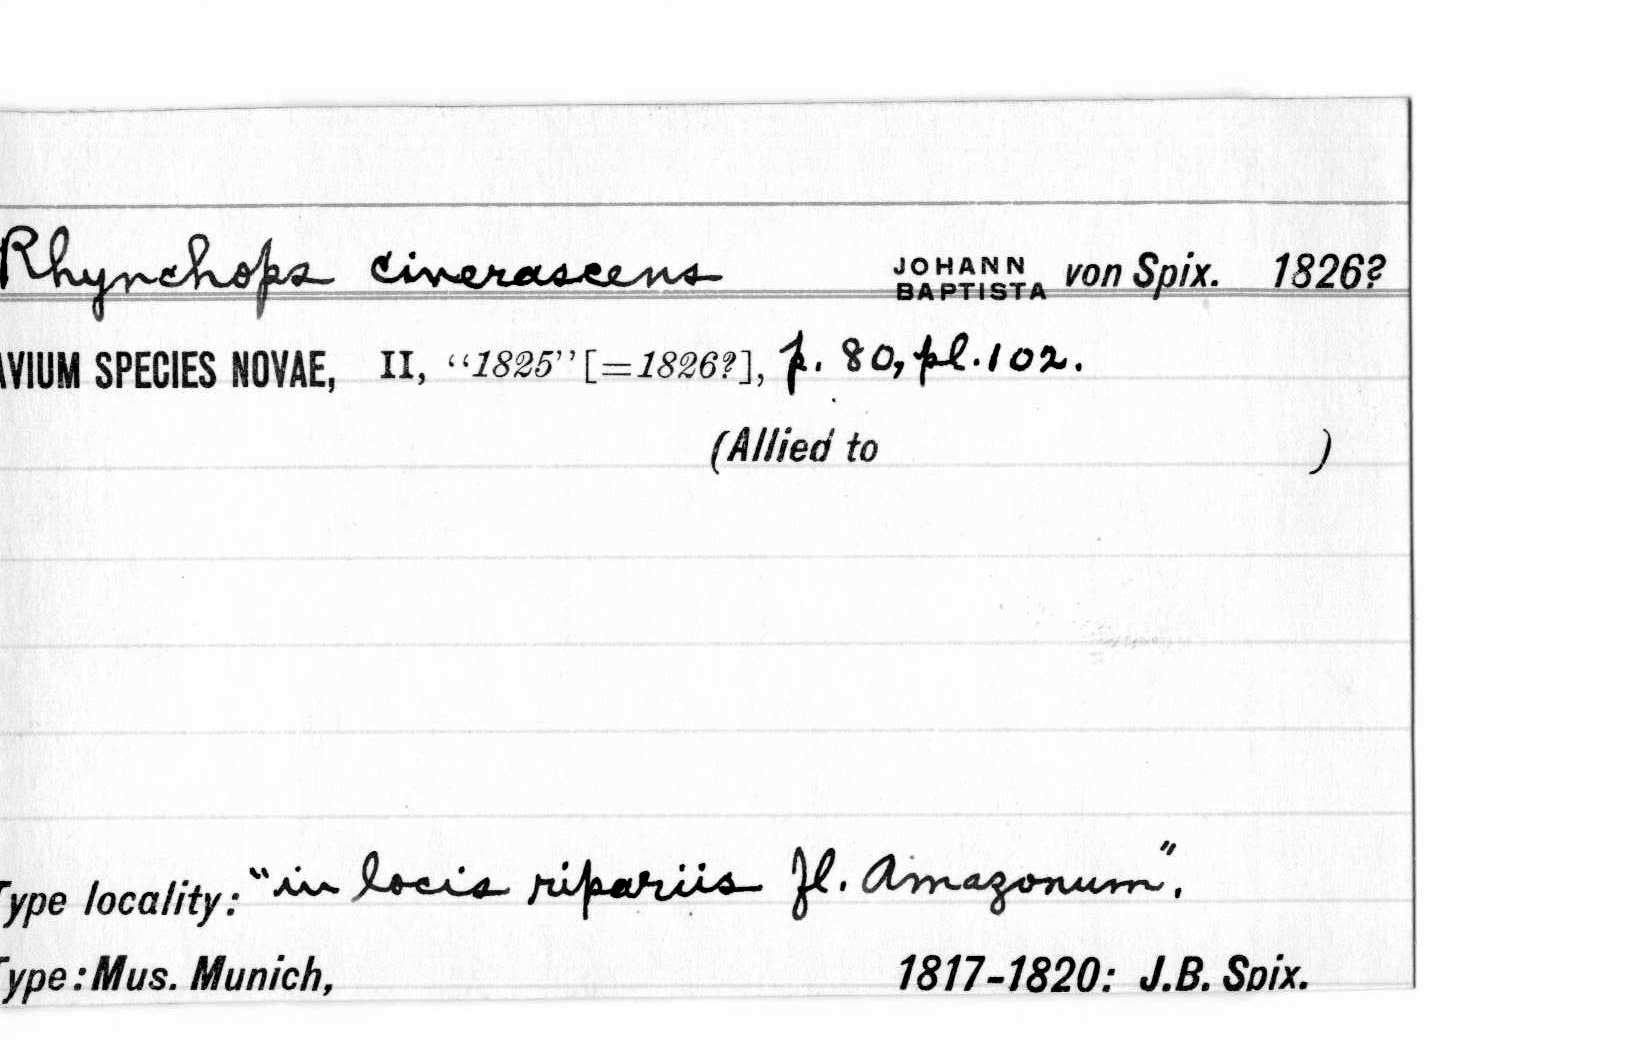 Rhynchops cinerascens JOHANN BAPTISTA von Spix. 1826?
AVIUM SPECIES NOVAE, II, "1825" [=1826?], p. 80, pl. 102.
(Allied to )
Type locality: "in locis ripariis fl. Amazonum".
Type: Mus. Munich, 1817-1820: J.B. Spix.